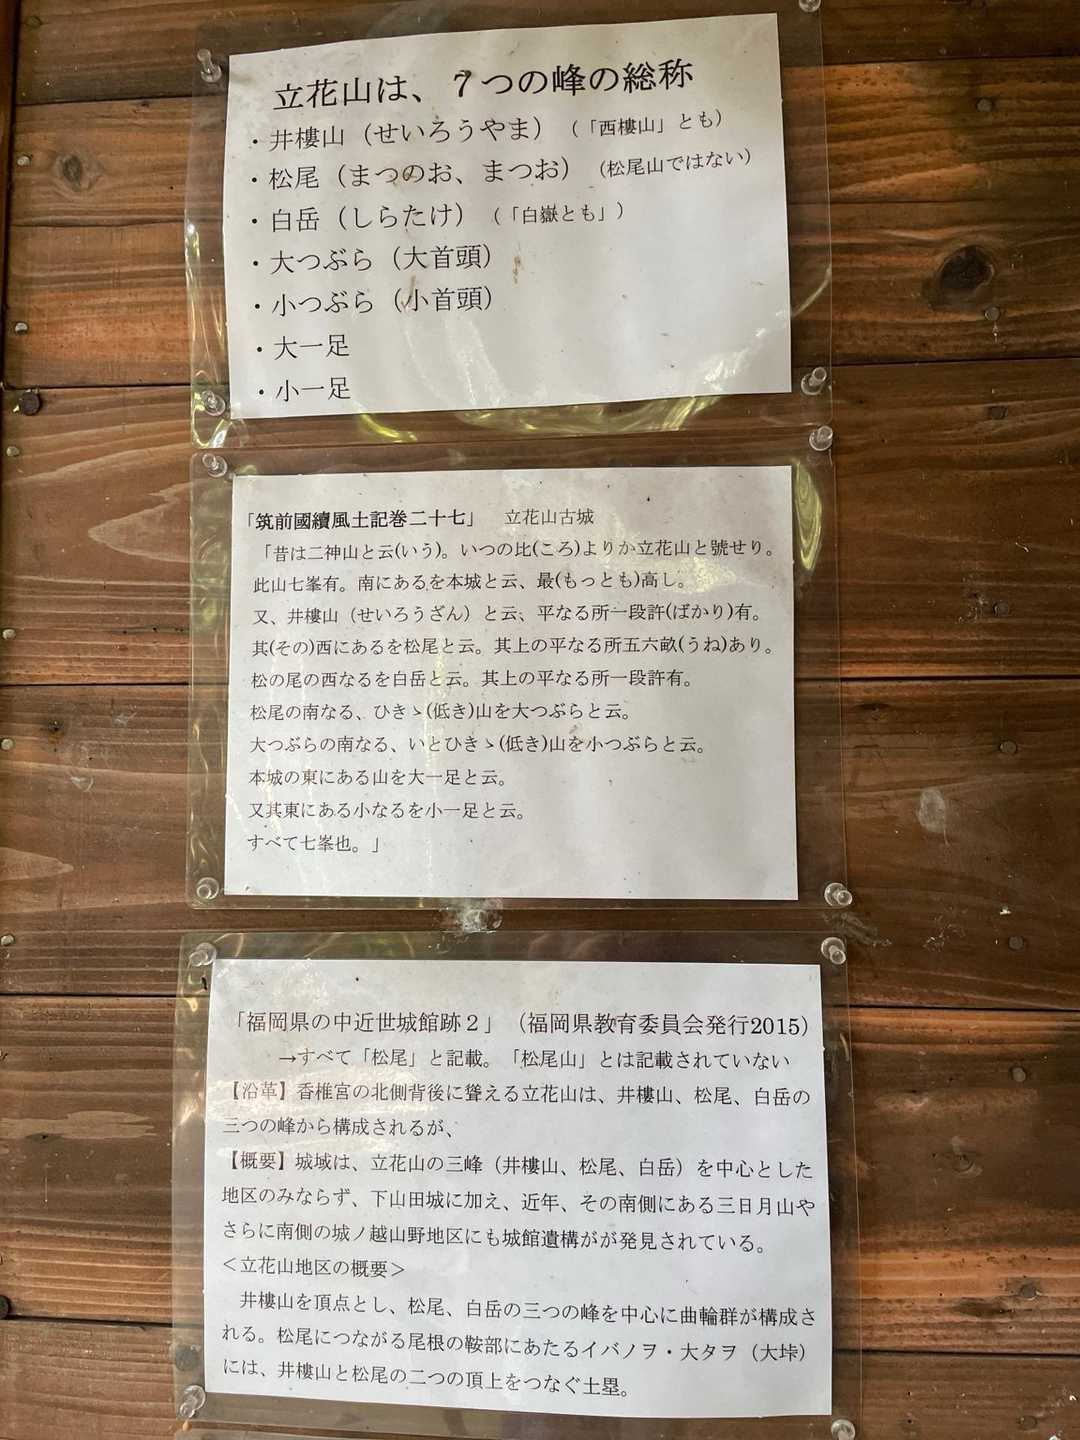 立花山は、７つの峰の総称
・井樓山（せいろうやま）（「西樓山」とも）
・松尾（まつのお、まつお）（松尾山ではない）
・白岳（しらたけ）（「白嶽とも」）
・大つぶら（大首頭）
・小つぶら（小首頭）
・大一足
・小一足
「筑前國續風土記巻二十七」　立花山古城
「昔は二神山と云(いう)。いつの比(ころ)よりか立花山と號せり。
此山七峯有。南にあるを本城と云、最(もっとも)高し。
又、井樓山（せいろうざん）と云、平なる所一段許(ばかり)有。
其(その)西にあるを松尾と云。其上の平なる所五六畝(うね)あり。
松の尾の西なるを白岳と云。其上の平なる所一段許有。
松尾の南なる、ひきゝ(低き)山を大つぶらと云。
大つぶらの南なる、いとひきゝ(低き)山を小つぶらと云。
本城の東にある山を大一足と云。
又其東にある小なるを小一足と云。
すべて七峯也。」
「福岡県の中近世城館跡２」（福岡県教育委員会発行2015）
→すべて「松尾」と記載。「松尾山」とは記載されていない
【沿革】香椎宮の北側背後に聳える立花山は、井樓山、松尾、白岳の
三つの峰から構成されるが、
【概要】城域は、立花山の三峰（井樓山、松尾、白岳）を中心とした
地区のみならず、下山田城に加え、近年、その南側にある三日月山や
さらに南側の城ノ越山野地区にも城館遺構がが発見されている。
＜立花山地区の概要＞
井樓山を頂点とし、松尾、白岳の三つの峰を中心に曲輪群が構成さ
れる。松尾につながる尾根の鞍部にあたるイバノヲ・大タヲ（大垰）
には、井樓山と松尾の二つの頂上をつなぐ土塁。